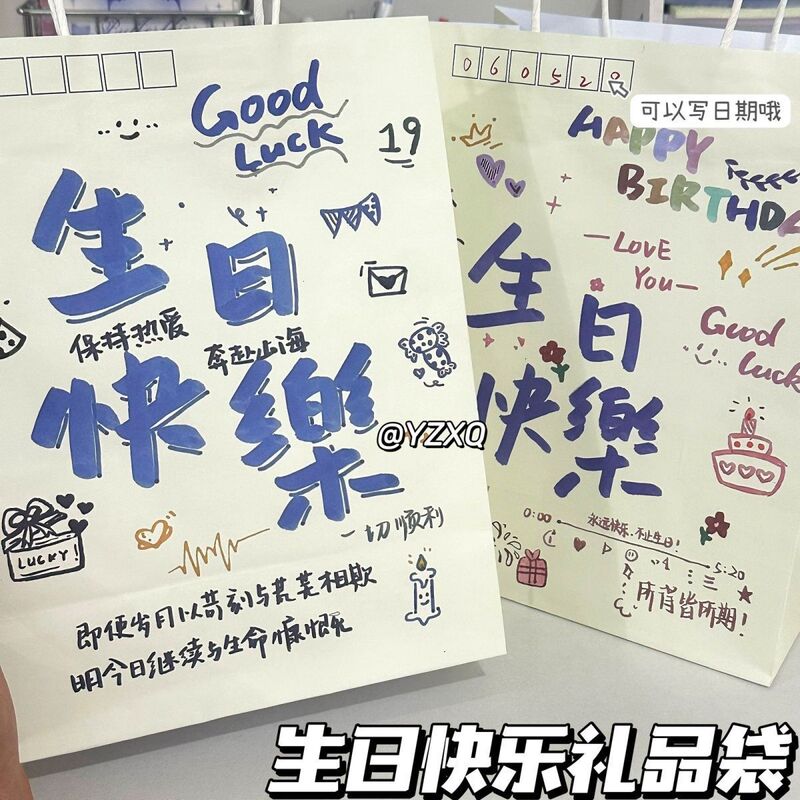 Good
Luck
19
生日
保持热爱
奔赴山海
快樂
LUCKY!
一切顺利
即便岁月以苛刻与荒芜相欺
明今日继续与生命慷慨相
060520
可以写日期哦
HAPPY
BIRTHDA
—LOVE
YOU—
生日
快樂
Good
Luck
0:00
永远快乐,不止生日!
5:20
所有皆所期!
@YZXQ
生日快乐礼品袋